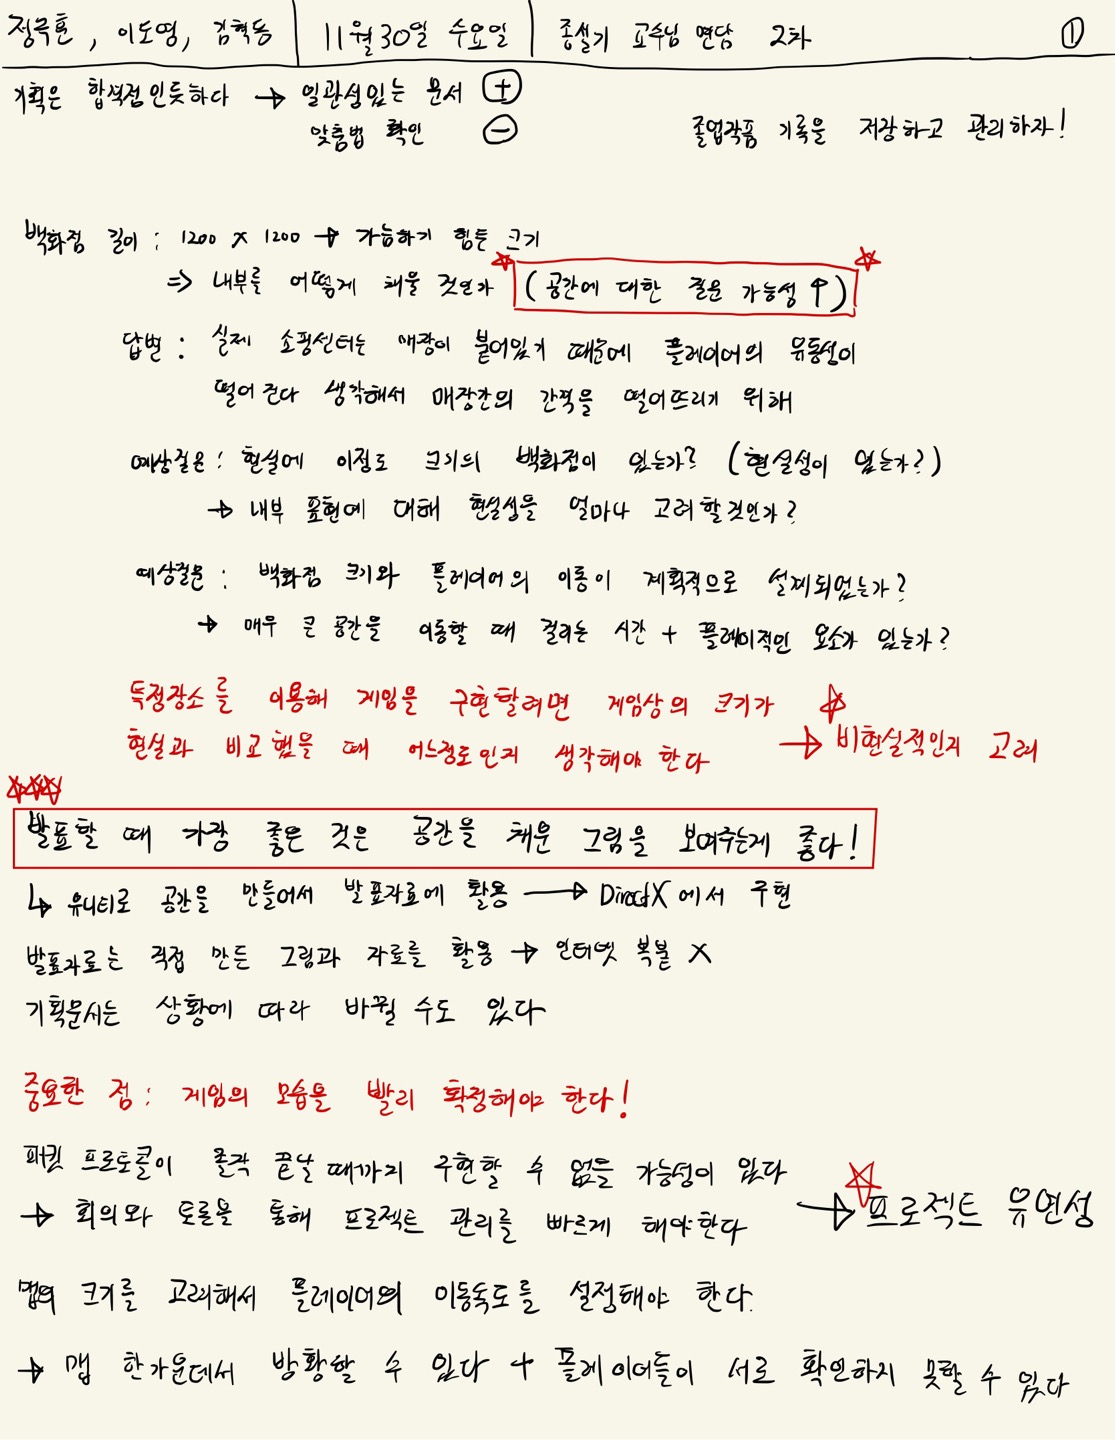 정극훈, 이도영, 김혁동 | 11월 30일 수요일 | 종설기 교수님 면담 2차 ①
기획은 합격점인듯하다 → 일관성있는 문서 ⊕
맞춤법 확인 ⊖
졸업작품 기록을 저장하고 관리하자!
백화점 길이 : 1200 x 1200 → 가늠하기 힘든 크기
⇒ 내부를 어떻게 채울 것인가 (공간에 대한 질문 가능성 ↑)
답변 : 실제 쇼핑센터는 매장이 붙어있기 때문에 플레이어의 유동성이
떨어진다 생각해서 매장간의 간격을 떨어뜨리기 위해
예상질문 : 현실에 이정도 크기의 백화점이 있는가? (현실성이 있는가?)
→ 내부 표현에 대해 현실성을 얼마나 고려할것인가?
예상질문 : 백화점 크기와 플레이어의 이동이 계획적으로 설계되었는가?
→ 매우 큰 공간을 이동할 때 걸리는 시간 + 플레이적인 요소가 있는가?
특정장소를 이용해 게임을 구현할려면 게임상의 크기가
현실과 비교했을 때 어느정도인지 생각해야 한다 → 비현실적인지 고려
발표할 때 가장 좋은 것은 공간을 채운 그림을 보여주는게 좋다!
↳ 유니티로 공간을 만들어서 발표자료에 활용 → DirectX에서 구현
발표자료는 직접 만든 그림과 자료를 활용 → 인터넷 복붙 X
기획문서는 상황에 따라 바뀔 수도 있다
중요한 점 : 게임의 모습을 빨리 확정해야 한다!
패킷 프로토콜이 졸작 끝날 때까지 구현할 수 없을 가능성이 있다
→ 회의와 토론을 통해 프로젝트 관리를 빠르게 해야한다 → 프로젝트 유연성
맵의 크기를 고려해서 플레이어의 이동속도를 설정해야 한다.
→ 맵 한가운데서 방황할 수 있다 + 플레이어들이 서로 확인하지 못할 수 있다